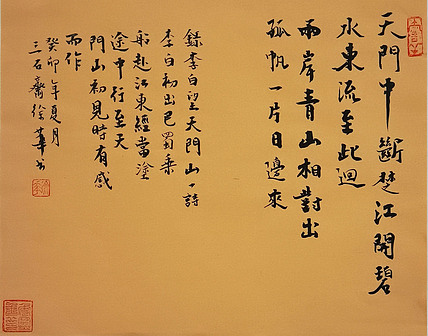 天門中斷楚江開碧
水東流至此迴
兩岸青山相對出
孤帆一片日邊來
錄李白望天門山一詩
李白初出巴蜀乘
船赴江東經當塗
途中行至天
門山初見時有感
而作
癸卯年夏月
三石齋徐華书